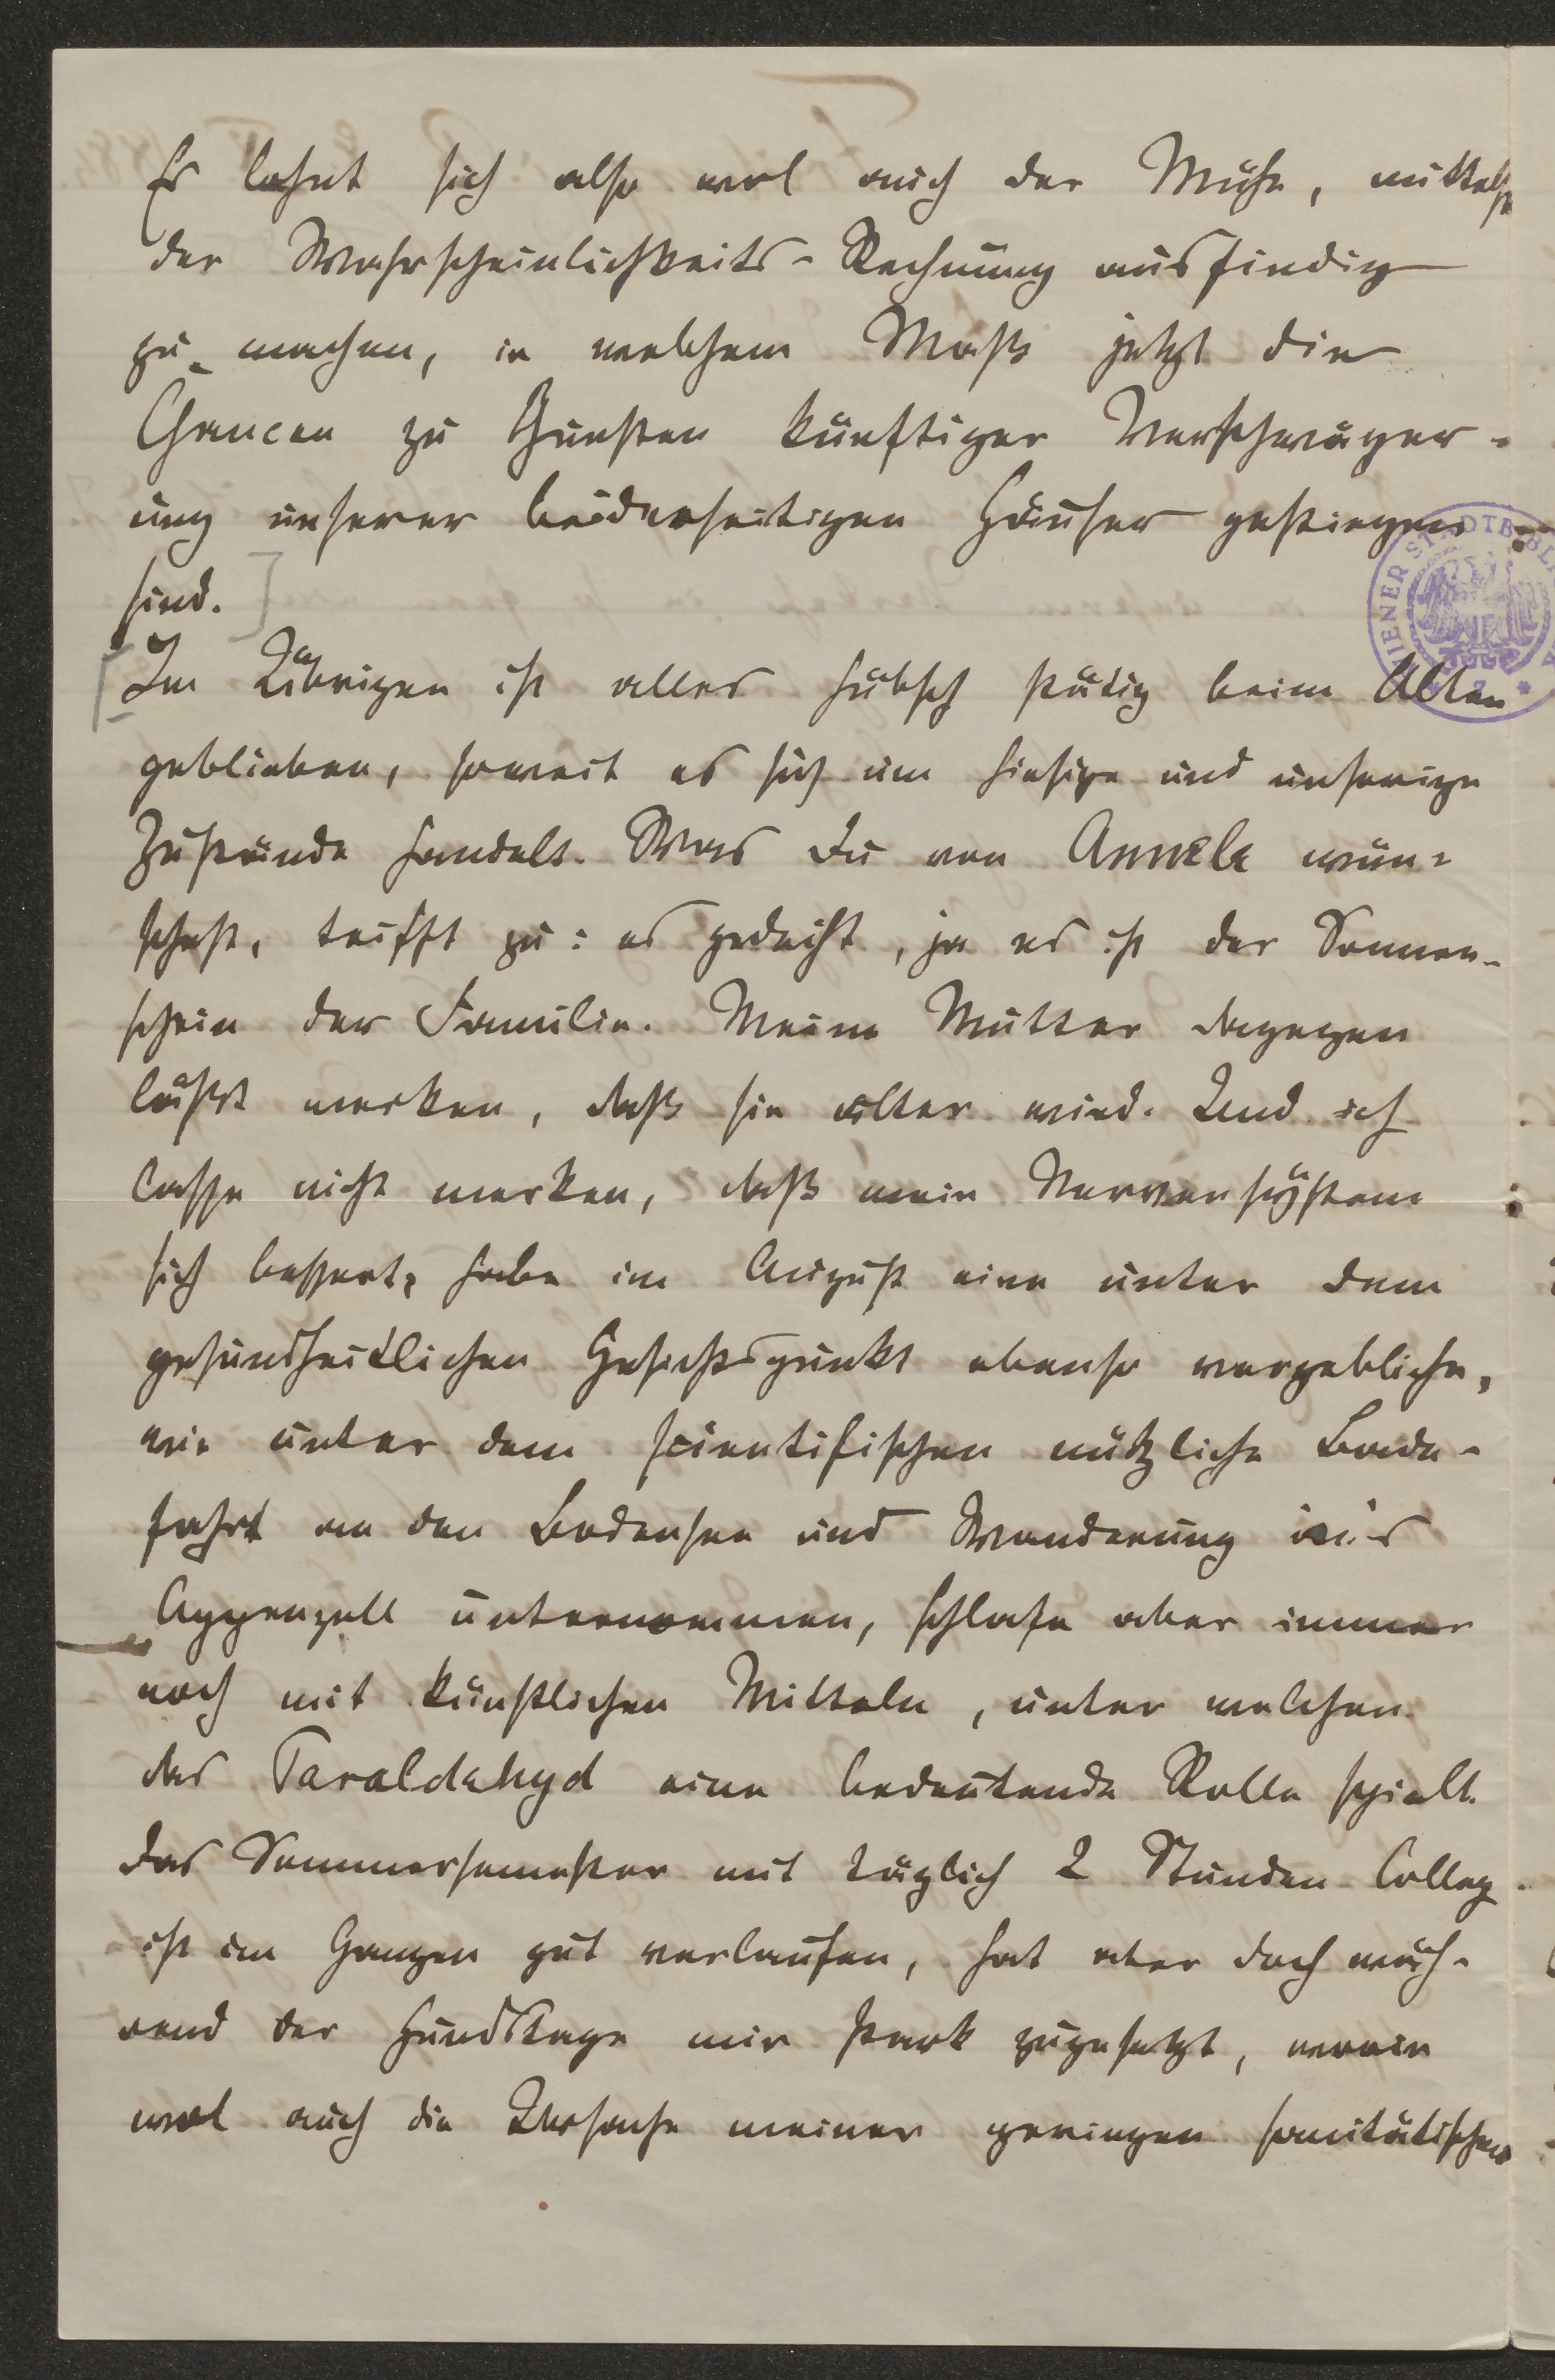 Es lohnt sich also wol auch der Mühe, mittelst
der Wahrscheinlichkeits-Rechnung ausfindig
zu machen, in welchem Maß jetzt die
Chancen zu Gunsten künftiger Verschwäger-
ung unserer beiderseitigen Häuser gestiegen
sind.]
[Im Übrigen ist alles hübsch stätig beim Alten
geblieben, soweit es sich um hiesige und unserige
Zustände handelt. Was Du von Annele wün-
schest, trifft zu: es gedeiht, ja es ist der Sonnen-
schein der Familie. Meine Mutter dagegen
läßt merken, daß sie älter wird. Und ich
lasse nicht merken, daß mein Nervensystem
sich bessert, habe im August eine unter dem
gesundheitlichen Gesichtspunkt ebenso vergebliche,
wie unter dem scientifischen nützliche Bade-
fahrt an den Bodensee und Wanderung in's
Appenzell unternommen, schlafe aber immer
noch mit künstlichen Mitteln, unter welchen
das Paraldehyd eine bedeutende Rolle spielt.
Das Sommersemester mit täglich 2 Stunden Colleg
ist im Ganzen gut verlaufen, hat aber doch wäh-
rend der Hundstage mir stark zugesetzt, worin
wol auch die Ursache meiner geringen sanitätischen
WIENER STADTBIBLI